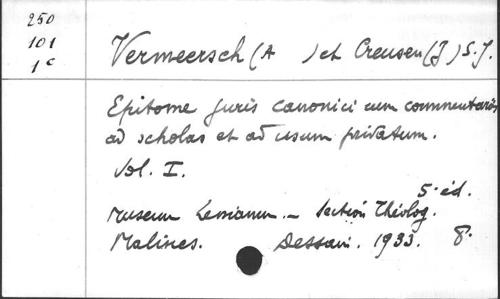 250
101
1c
Vermeersch (A ) et Creusen (J) S.J.
Epitome Juris canonici cum commentariis
ad scholas et ad usum privatum.
Vol. I.
5e éd.
Museum Lessianum. - Section Théolog.
Malines. Dessain. 1933. 8.